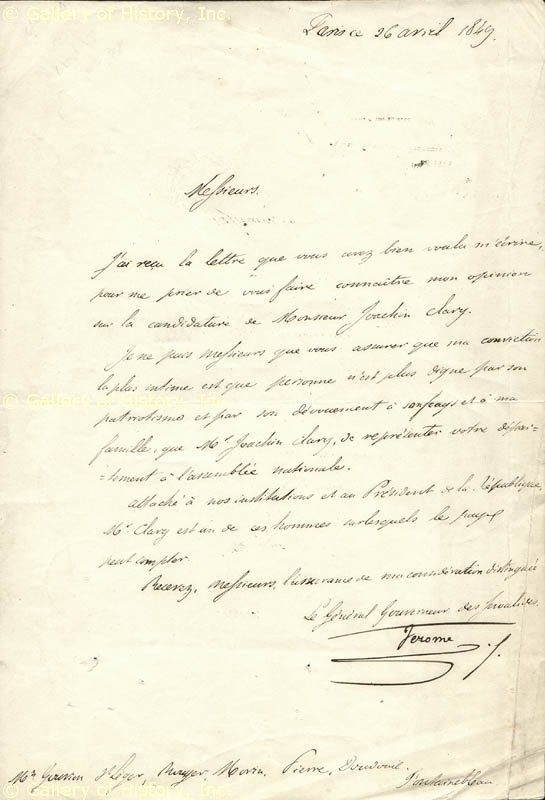 © Gallery of History, Inc.
Paris ce 26 avril 1849.
© Gallery of History, Inc.
Messieurs.
J'ai reçu la lettre que vous avez bien voulu m'écrire,
pour me prier de vous faire connaître mon opinion
sur la candidature de Monsieur Joachin Clary.
Je ne puis Messieurs que vous assurer que ma conviction
la plus intime est que personne n'est plus digne par son
© Gallery of History, Inc.
patriotisme et par son dévouement à son pays et à ma
famille, que Mr. Joachin Clary, de représenter votre dépar=
=tement à l'assemblée nationale.
attaché à nos institutions et au Président de la République,
Mr. Clary est un de ces hommes sur lesquels le pays
peut compter.
Recevez, Messieurs, l'assurance de ma considération distinguée
Le Général Gouverneur des Invalides.
Jerome
Mrs. St Leger, Moryer, Morin, Pierre,
Fontainebleau
© Gallery of History, Inc.